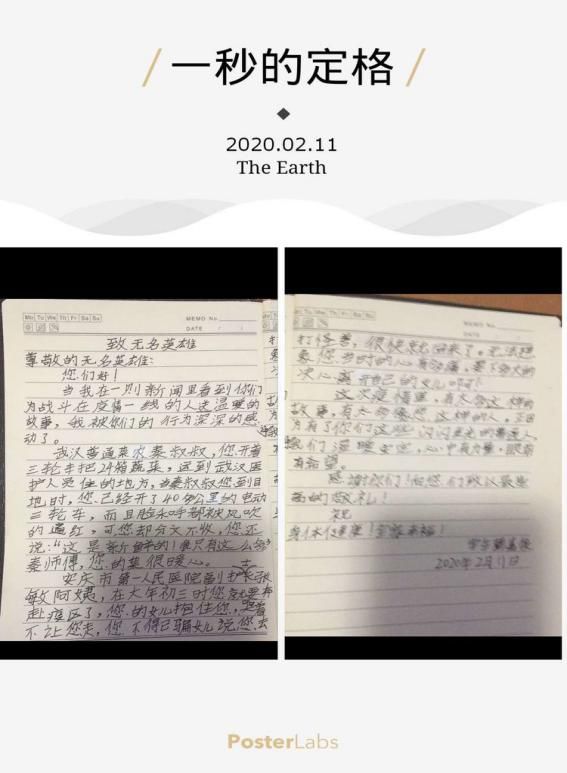 一秒的定格
2020.02.11
The Earth
Mo Tu We Th Fr Sa Su
MEMO No.
DATE / /
致无名英雄
尊敬的无名英雄:
您们好!
当我在一则新闻里看到你们
为战斗在疫情一线的人送温暖的
故事,我被你们的行为深深的感
动了。
武汉普通菜农秦叔叔,您开着
三轮车把24箱蔬菜,送到武汉医
护人员住的地方,当秦叔叔您到目
地时,您已经开了40多公里的电动
三轮车,而且脸和呼都被风吹
的通红,可您却分文不收,您还
说:"这是新鲜的!但只有这么多
秦师傅,您的菜很暖心。
安庆市第一人民医院副护士长张
敏阿姨,在大年初三时您就要奔
赴疫区了,您的女儿抱住您,哭着
不让您走,您不得已骗女儿说您去
打怪兽,很快就回来了。无法想
象您当时的心有多痛,要下多大的
次心离开自己的女儿呀?
这次疫情里,有太多这样的
故事,有太多像您这样的人,正因
为有了你们这些闪闪发光的普通人,
我们温暖,心中有力量,眼前
有希望。
感谢你们!向您们致以最崇
高的敬礼!
祝
身体健康!
2020年2月11日
PosterLabs